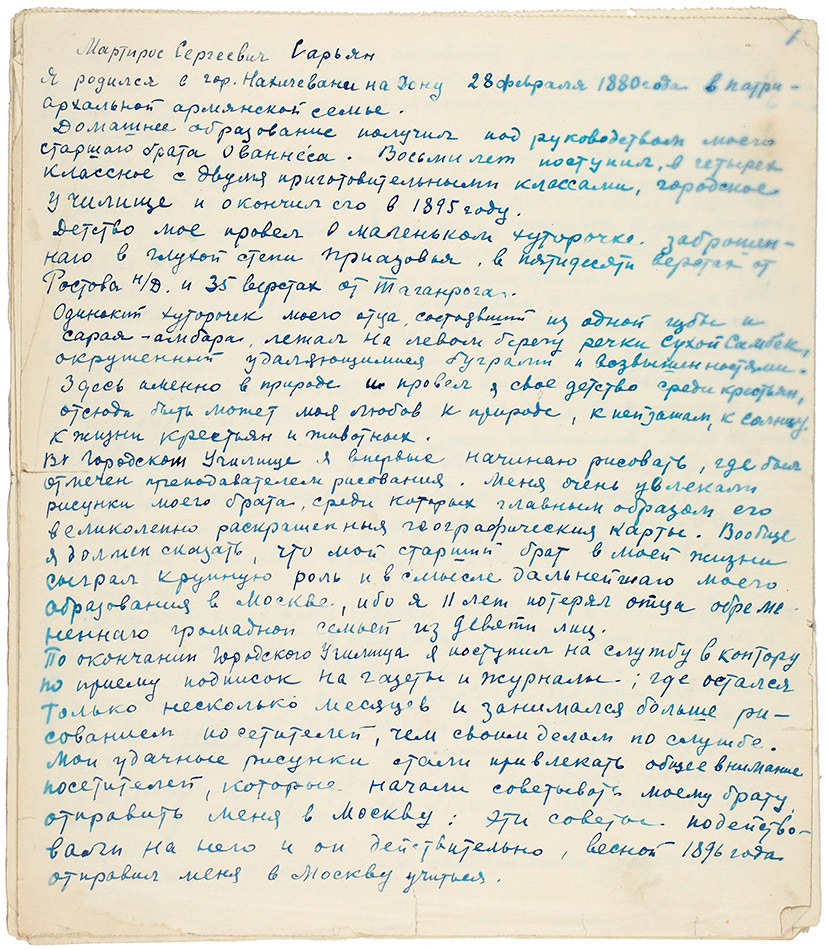 1
Мартирос Сергеевич Сарьян
Я родился в гор. Нахичевани на Дону 28 февраля 1880 года в патри-
архальной армянской семье.
Домашнее образование получил под руководством моего
старшаго брата Ованнеса. Восьми лет поступил, в четырех
классное с двумя приготовительными классами, городское
училище и окончил его в 1895 году.
Детство мое провел в маленьком хуторочке заброшен-
наго в глухой степи Приазовья, в пятидесяти верстах от
Ростова н/Д. и 35 верстах от Таганрога.
Одинокий хуторочек моего отца, состоявший из одной избы и
сарая-амбара, лежал на левом берегу речки Сухой Самбек,
окруженный удаляющимися буграми и возвышенностями.
Здесь именно в природе и провел я свое детство среди крестьян,
отсюда быть может моя любов к природе, к пейзажам, к солнцу
к жизни крестьян и животных.
В Городском Училище я впервые начинаю рисовать, где был
отмечен преподавателем рисования. Меня очень увлекали
рисунки моего брата, среди которых главным образом его
великолепно раскрашенныя географическия карты. Вообще
я должен сказать, что мой старший брат в моей жизни
сыграл крупную роль и в смысле дальнейшаго моего
образования в Москве, ибо я 11 лет потерял отца обреме-
неннаго громадной семьей из девяти лиц.
По окончании Городского Училища я поступил на службу в контору
по приему подписок на газеты и журналы; где остался
только несколько месяцев и занимался больше ри-
сованием посетителей, чем своим делом по службе.
Мои удачные рисунки стали привлекать общее внимание
посетителей, которые начали советывать моему брату
отправить меня в Москву: эти советы подейство-
вали на него и он действительно, весной 1896 года
отправил меня в Москву учиться.